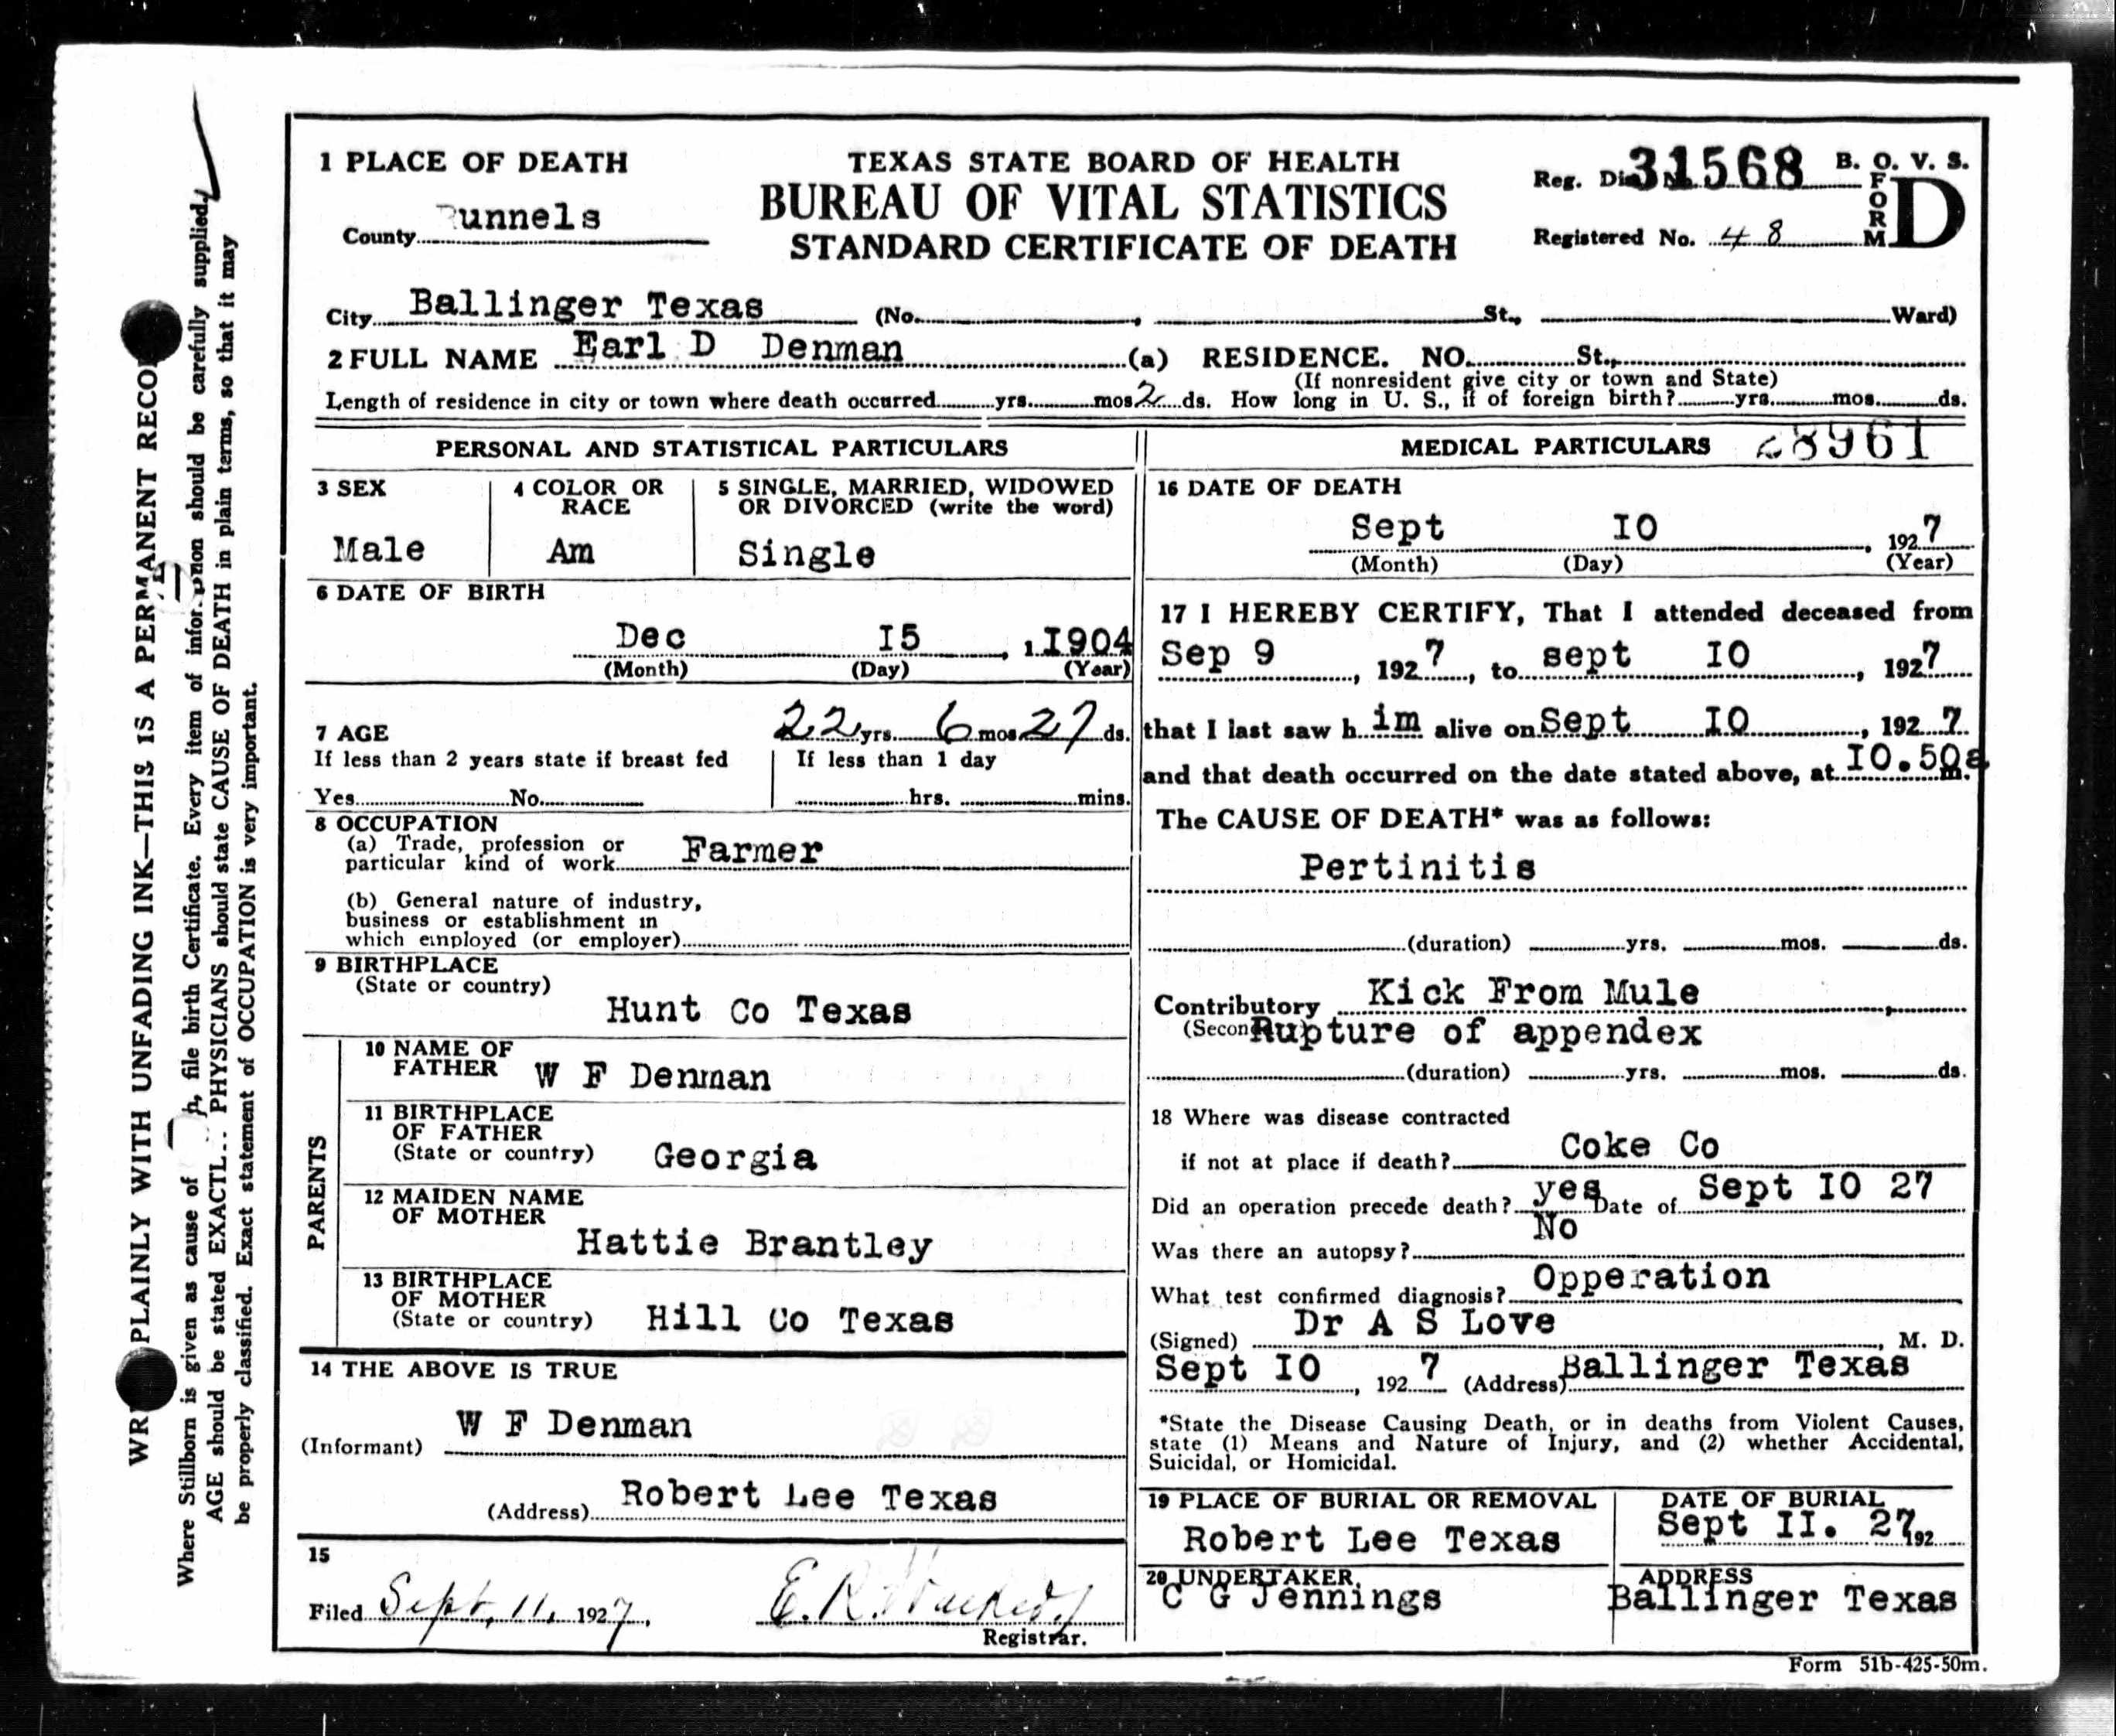 1 PLACE OF DEATH
County Runnels
TEXAS STATE BOARD OF HEALTH
BUREAU OF VITAL STATISTICS
STANDARD CERTIFICATE OF DEATH
Reg. Dis 31568 B. O. V. S.
Registered No. 48 FORM D
City Ballinger Texas (No. , St., Ward)
2 FULL NAME Earl D Denman (a) RESIDENCE. NO. St.,
(If nonresident give city or town and State)
Length of residence in city or town where death occurred yrs. mos 2 ds. How long in U. S., if of foreign birth? yrs. mos. ds.
PERSONAL AND STATISTICAL PARTICULARS
3 SEX
Male
4 COLOR OR RACE
Am
5 SINGLE, MARRIED, WIDOWED
OR DIVORCED (write the word)
Single
6 DATE OF BIRTH
Dec I5 , 1 I904
(Month) (Day) (Year)
7 AGE 22 yrs. 6 mos 27 ds.
If less than 2 years state if breast fed
Yes No
If less than 1 day
hrs. mins.
8 OCCUPATION
(a) Trade, profession or
particular kind of work Farmer
(b) General nature of industry,
business or establishment in
which employed (or employer)
9 BIRTHPLACE
(State or country)
Hunt Co Texas
PARENTS
10 NAME OF
FATHER W F Denman
11 BIRTHPLACE
OF FATHER
(State or country) Georgia
12 MAIDEN NAME
OF MOTHER
Hattie Brantley
13 BIRTHPLACE
OF MOTHER
(State or country) Hill Co Texas
14 THE ABOVE IS TRUE
W F Denman
(Informant)
(Address) Robert Lee Texas
15
Filed Sept. 11, 1927,
E. R.
Registrar.
MEDICAL PARTICULARS 28961
16 DATE OF DEATH
Sept IO , 1927
(Month) (Day) (Year)
17 I HEREBY CERTIFY, That I attended deceased from
Sep 9 , 1927, to sept IO , 1927
that I last saw h im alive on Sept IO , 192 7.
and that death occurred on the date stated above, at IO.50a m.
The CAUSE OF DEATH* was as follows:
Pertinitis
(duration) yrs. mos. ds.
Contributory Kick From Mule
(Secon Rupture of appendex
(duration) yrs. mos. ds.
18 Where was disease contracted
if not at place if death? Coke Co
Did an operation precede death? yes Date of Sept IO 27
Was there an autopsy? No
What test confirmed diagnosis? Opperation
(Signed) Dr A S Love , M. D.
Sept IO , 192 7 (Address) Ballinger Texas
*State the Disease Causing Death, or in deaths from Violent Causes,
state (1) Means and Nature of Injury, and (2) whether Accidental,
Suicidal, or Homicidal.
19 PLACE OF BURIAL OR REMOVAL
Robert Lee Texas
DATE OF BURIAL
Sept II. 27, 192
20 UNDERTAKER
C G Jennings
ADDRESS
Ballinger Texas
Form 51b-425-50m.
PLAINLY WITH UNFADING INK—THIS IS A PERMANENT RECO
Where Stillborn is given as cause of file birth Certificate. Every item of should be carefully supplied.
AGE should be stated EXACTL.. PHYSICIANS should state CAUSE OF DEATH in plain terms, so that it may
be properly classified. Exact statement of OCCUPATION is very important.